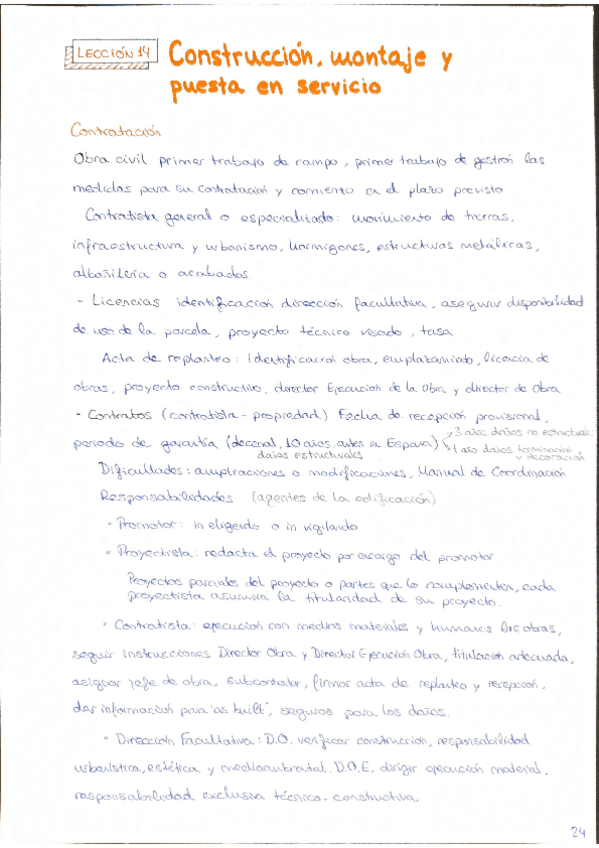 LECCIÓN 14
Construcción, montaje y
puesta en servicio
Contratación
Obra civil primer trabajo de campo, primer trabajo de gestión las
medidas para su contratación y comienzo en el plazo previsto
Contratista general o especializado: movimiento de tierras,
infraestructura y urbanismo, hormigones, estructuras metálicas,
albañilería o acabados.
- Licencias identificación dirección facultativa, asegurar disponibilidad
de uso de la parcela, proyecto técnico visado, tasa
Acta de replanteo: identificación obra, emplazamiento, licencia de
obras, proyecto constructivo, director Ejecución de la Obra y director de Obra
- Contratos (contratista - propiedad) Fecha de recepción provisional,
periodo de garantía (decenal, 10 años, antes en España)
3 años daños no estructurales
1 año daños terminación
y decoración
daños estructurales
Dificultades: ampliaciones o modificaciones, Manual de Coordinación
Responsabilidades (agentes de la edificación)
• Promotor: in eligendo o in vigilando
• Proyectista: redacta el proyecto por encargo del promotor
Proyectos parciales del proyecto o partes que lo complementen, cada
proyectista asumirá la titularidad de su proyecto.
• Contratista: ejecución con medios materiales y humanos las obras,
seguir instrucciones Director Obra y Director Ejecución Obra, titulación adecuada,
asignar jefe de obra, subcontratar, firmar acta de replanteo y recepción,
dar información para "as built", seguros para los daños.
• Dirección Facultativa: D.O. verificar construcción, responsabilidad
urbanística, estética y medioambiental. D.O.E. dirigir ejecución material,
responsabilidad exclusiva técnico-constructiva.
24